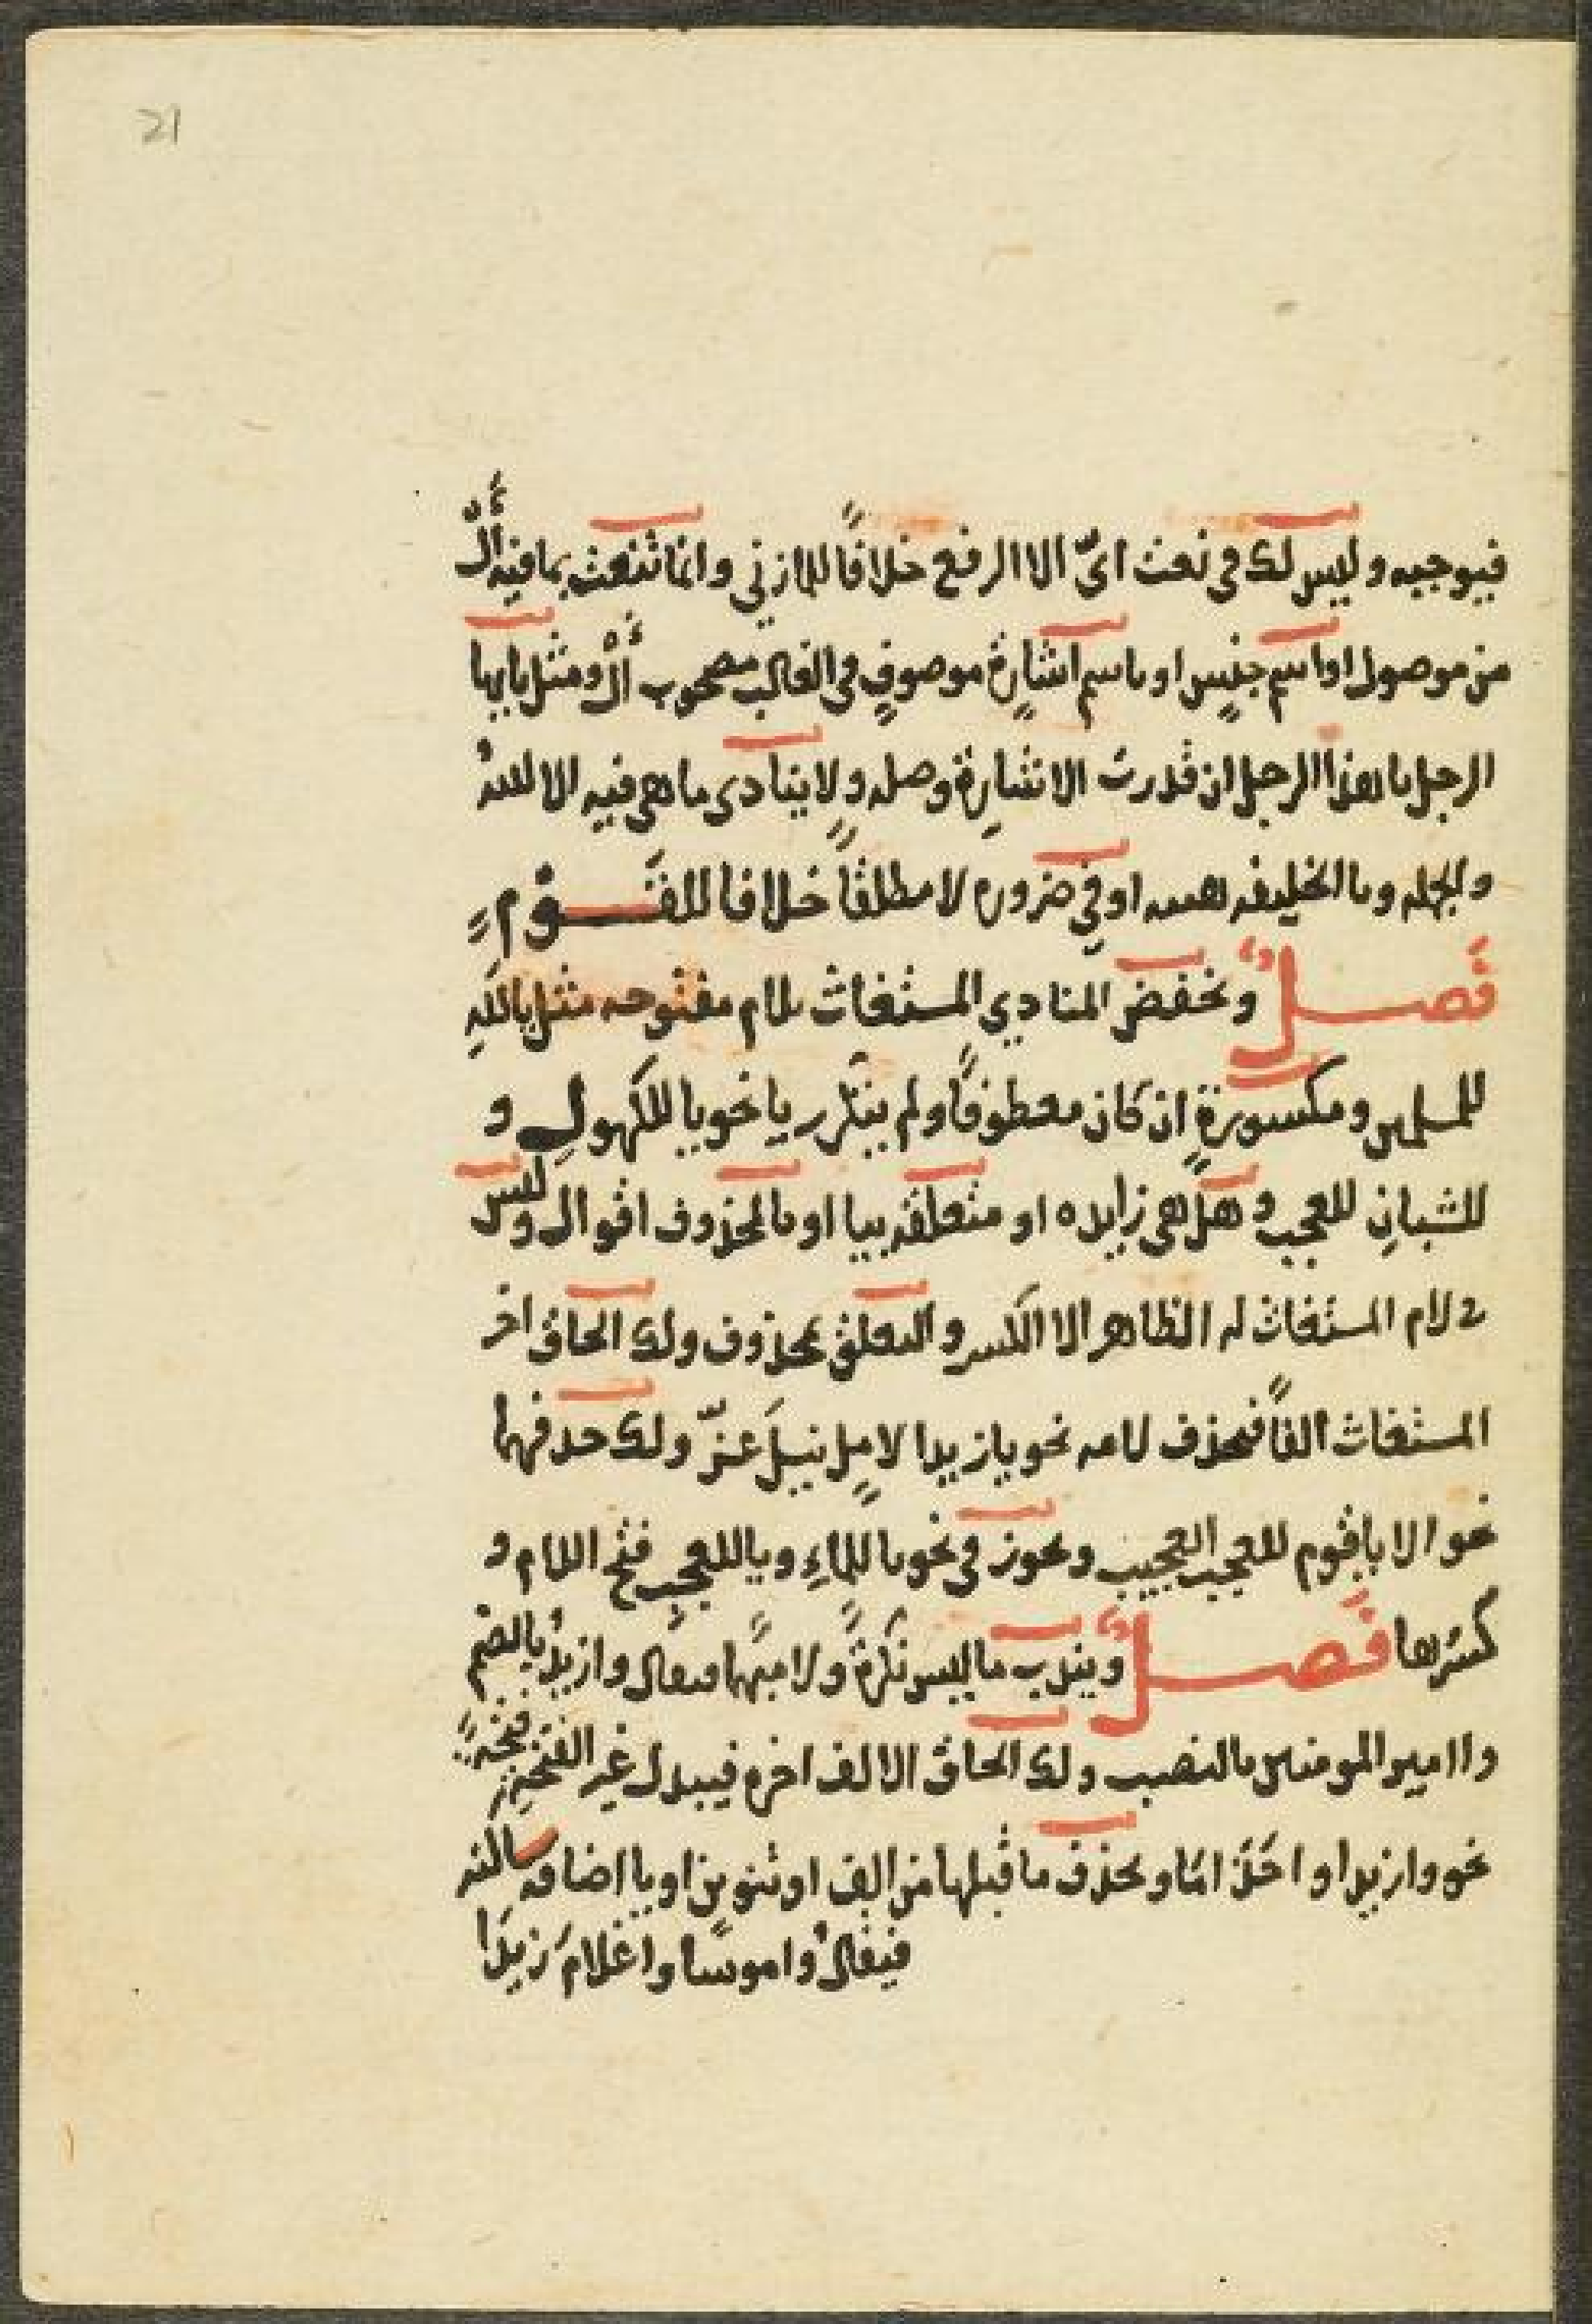 21
فيوجبه وليس لك في نعت ايّ الا الرفع خلافًا للمازني وانما تنعت بما فيه أَلْ
من موصول او اسم جنسٍ او باسم اشارةٍ موصوفٍ في الغالب بمصحوب أَلْ ومثل يا ايها
الرجل يا هذا الرجل ان قدرت الاشارةَ وصلةً ولا ينادى ما هي فيه الا اللهُ
والجمله ويا الخليفه هيبه او في ضروره لا مطلقًا خلافا للقَوْمٍ
فَصلٌ ويخفض المنادي المستغاث بلام مفتوحه مثل يا لَلهِ
للمسلمين ومكسورةٍ ان كان معطوفًا ولم يتكرر يا نحو يا للكهولِ و
للشبانِ للعجب وهل هي زايده او متعلقه بيا او بالمحذوف اقوال وليس
في لام المستغاث له الظاهر الا الكسر والتعلق بمحذوف ولك الحاق اخر
المستغاث الفًا فتحذف لامه نحو يا زيدا لاملٍ نيلَ عزّ ولك حذفهما
نحو الا يا قوم للعجب العجيب ويجوز في نحو يا للماءِ ويا للعجبِ فتح اللام و
كسرها فَصلٌ ويندب ما ليس نكرةً ولا مبهمًا فيقال وازيدُ بالضم
واامير المومنين بالنصب ولك الحاق الالف اخره فيبدل غير الفتحه فتحةً
نحو وازيدا واحَذامَا ويحذف ما قبلها من الف او تنوين او يا اضافه ساكنه
فيقالُ واموسًا واغلامَ زيدَا